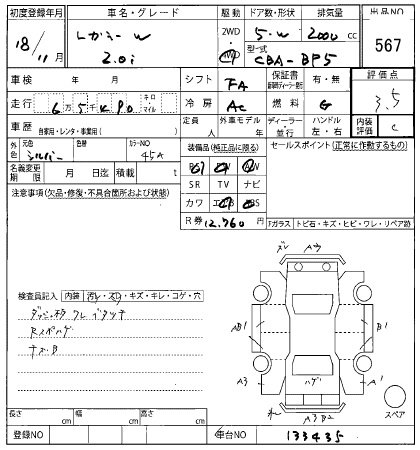 初度登録年月 車名・グレード 駆動 ドア数・形状 排気量 出品NO
18/11月 レガシーW 2.0i 2WD 4WD 5・W 2000cc 567
型式 CBA-BP5
車検 年 月 シフト FA 保証書 有・無 評価点
3.5
走行 6万5千K キロ・マイル 冷房 AC 燃料 G
車歴 自家用・レンタ・事業用( ) 外車モデル 年 ディーラー・並行 ハンドル 左・右 内装評価 C
外色 元色 シルバー 色替 カラーNO 45A 装備品(純正品に限る) セールスポイント(正常に作動するもの)
名義変更期限 月 日迄 積載 t
PS PW AW
SR TV ナビ
カワ エアB ABS
注意事項(欠品・修復・不具合箇所および状態)
R券 12,760円
Fガラス トビ石・キズ・ヒビ・ワレ・リペア跡
検査員記入 内装 汚レ・スレ・キズ・キレ・コゲ・穴
ズレ Aウ
AB1 B1
A3 ハゲ A1
A3B2
スペア
長さ cm 幅 cm 高さ cm
登録NO 車台NO 133435